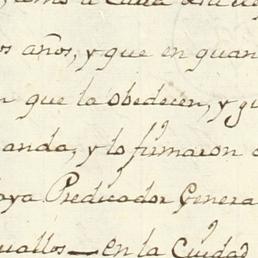 como a
os años, y que en quan
n que la obedecen, y gu
anda, y lo firmaron
oya Predicador Genera
uallos — en la Ciudad